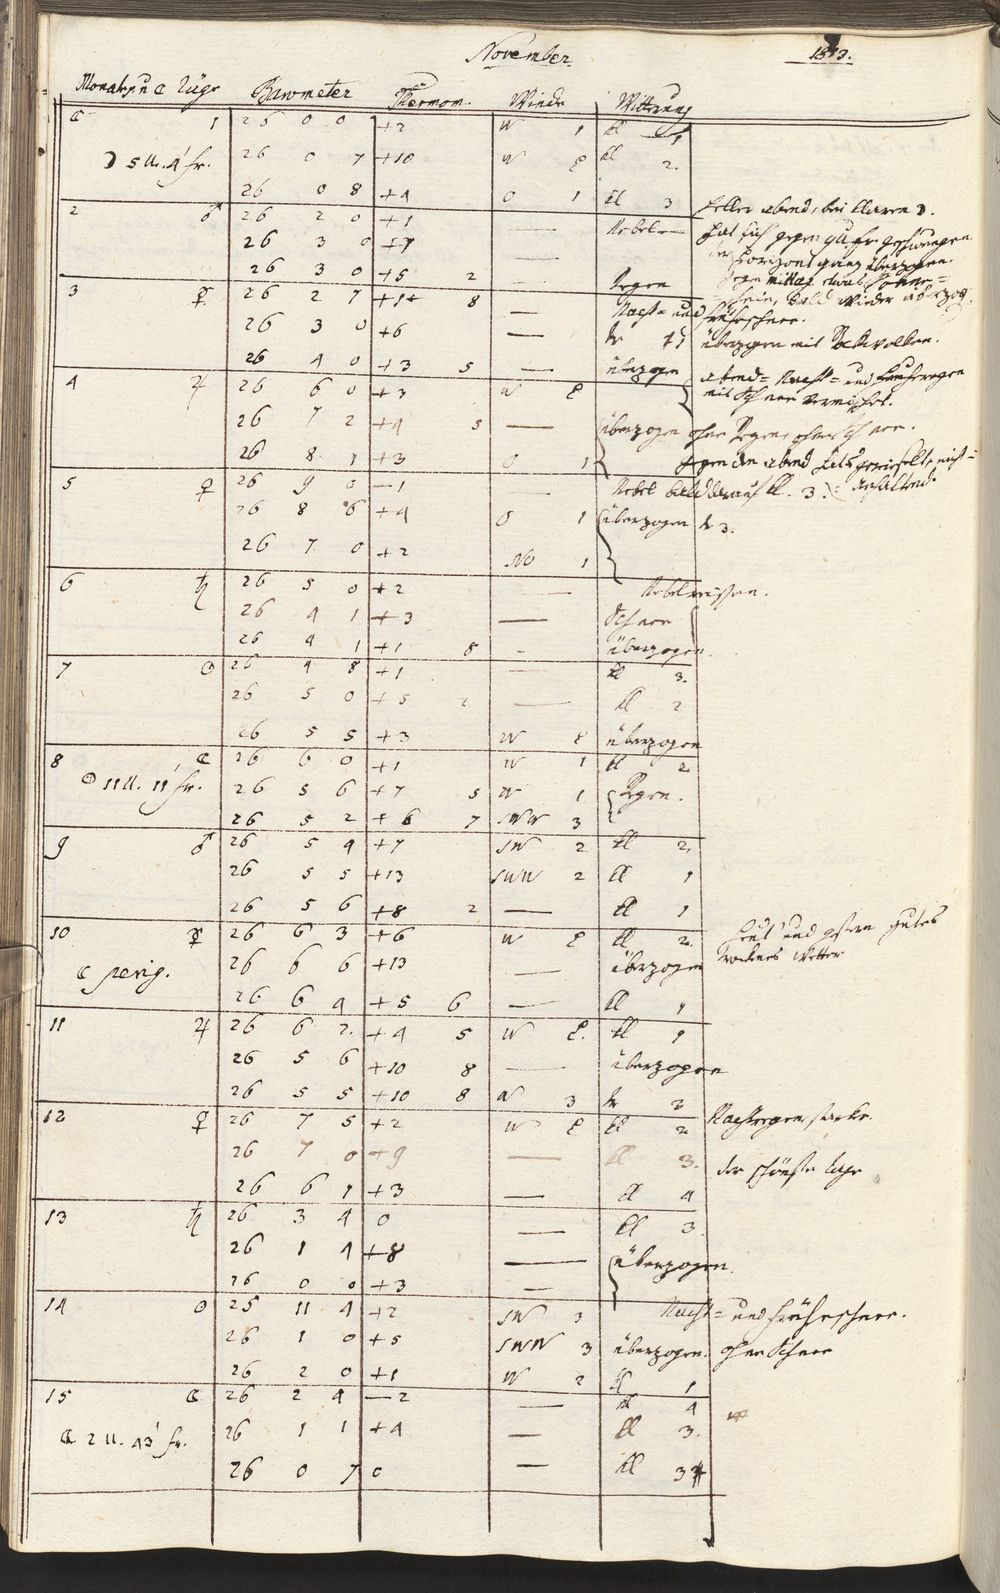 November. 1813.
Monats u ☾ Täge Barometer Thermom. Winde Witterung
☾ 1 25 0 0 +2 W 1 kl 1
☽ 5 U. 4' fr. 26 0 7 +10 W kl 2.
26 0 8 +4 O 1 kl 3 heller abend, bei klaren ☽.
2 ♂ 26 2 0 +1 — Nebel — hat sich gegen 9 U. fr. geschwungen
26 3 0 +7 — der Horizont ganz überzogen.
26 3 0 +5 2 Regen gegen mittag etwas Sonnen=
3 ☿ 26 2 7 +1 8 — Nacht= und schein, bald wieder überzog.
26 3 0 +6 — frühschnee.
überzogen mit Wolken.
26 4 0 +3 5 — überzogen abend= Nacht= und frühregen
4 ♃ 26 6 0 +3 W mit Schnee vermischt.
26 7 2 +4 5 — überzogen ohne Regen, ohne Schnee.
26 8 1 +3 O 1 gegen den abend
5 ♀ 26 9 0 —1 — Nebel bald darauf kl. 3.
26 8 6 +4 O 1 überzogen tr 3.
26 7 0 +2 NO 1
6 ♄ 26 5 0 +2 — Nebelreissen.
26 4 1 +3 — Schnee
26 4 1 +1 8 - überzogen.
7 ☉ 26 4 8 +1 — kl 3.
26 5 0 +5 2 — kl 2
26 5 5 +3 W überzogen
8 ☾ 26 6 0 +1 W 1 kl 2
11 U. 11' fr. 26 5 6 +7 5 W 1 Regen.
26 5 2 +6 7 SWW 3
9 ♂ 26 5 4 +7 SW 2 kl 2.
26 5 5 +13 SWW 2 kl 1
26 5 6 +8 2 — kl 1
10 ☿ 26 6 3 +6 W kl 2 heut' und gestern gutes
☾ perig. 26 6 6 +13 — überzogen trockenes Wetter
26 6 4 +5 6 — kl 1
11 ♃ 26 6 2. +4 5 W kl 1
26 5 6 +10 8 — überzogen
26 5 5 +10 8 W 3 tr 3
12 ♀ 26 7 5 +2 W kl 2 Nachtregen, starke.
26 7 0 +9 — kl 3. der schönste tage
26 6 1 +3 — kl 4
13 ♄ 26 3 4 0 — kl 3.
26 1 4 +8 — überzogen.
26 0 0 +3 —
14 ☉ 25 11 4 +2 SW 3 Nacht= und frühschnee.
26 1 0 +5 SWW 3 überzogen. ohne Schnee
26 2 0 +1 W 2 kl 1
15 ☾ 26 2 4 —2 — kl 4
☾ 2 U. 43' fr. 26 1 1 +4 — kl 3.
26 0 7 0 — kl 3